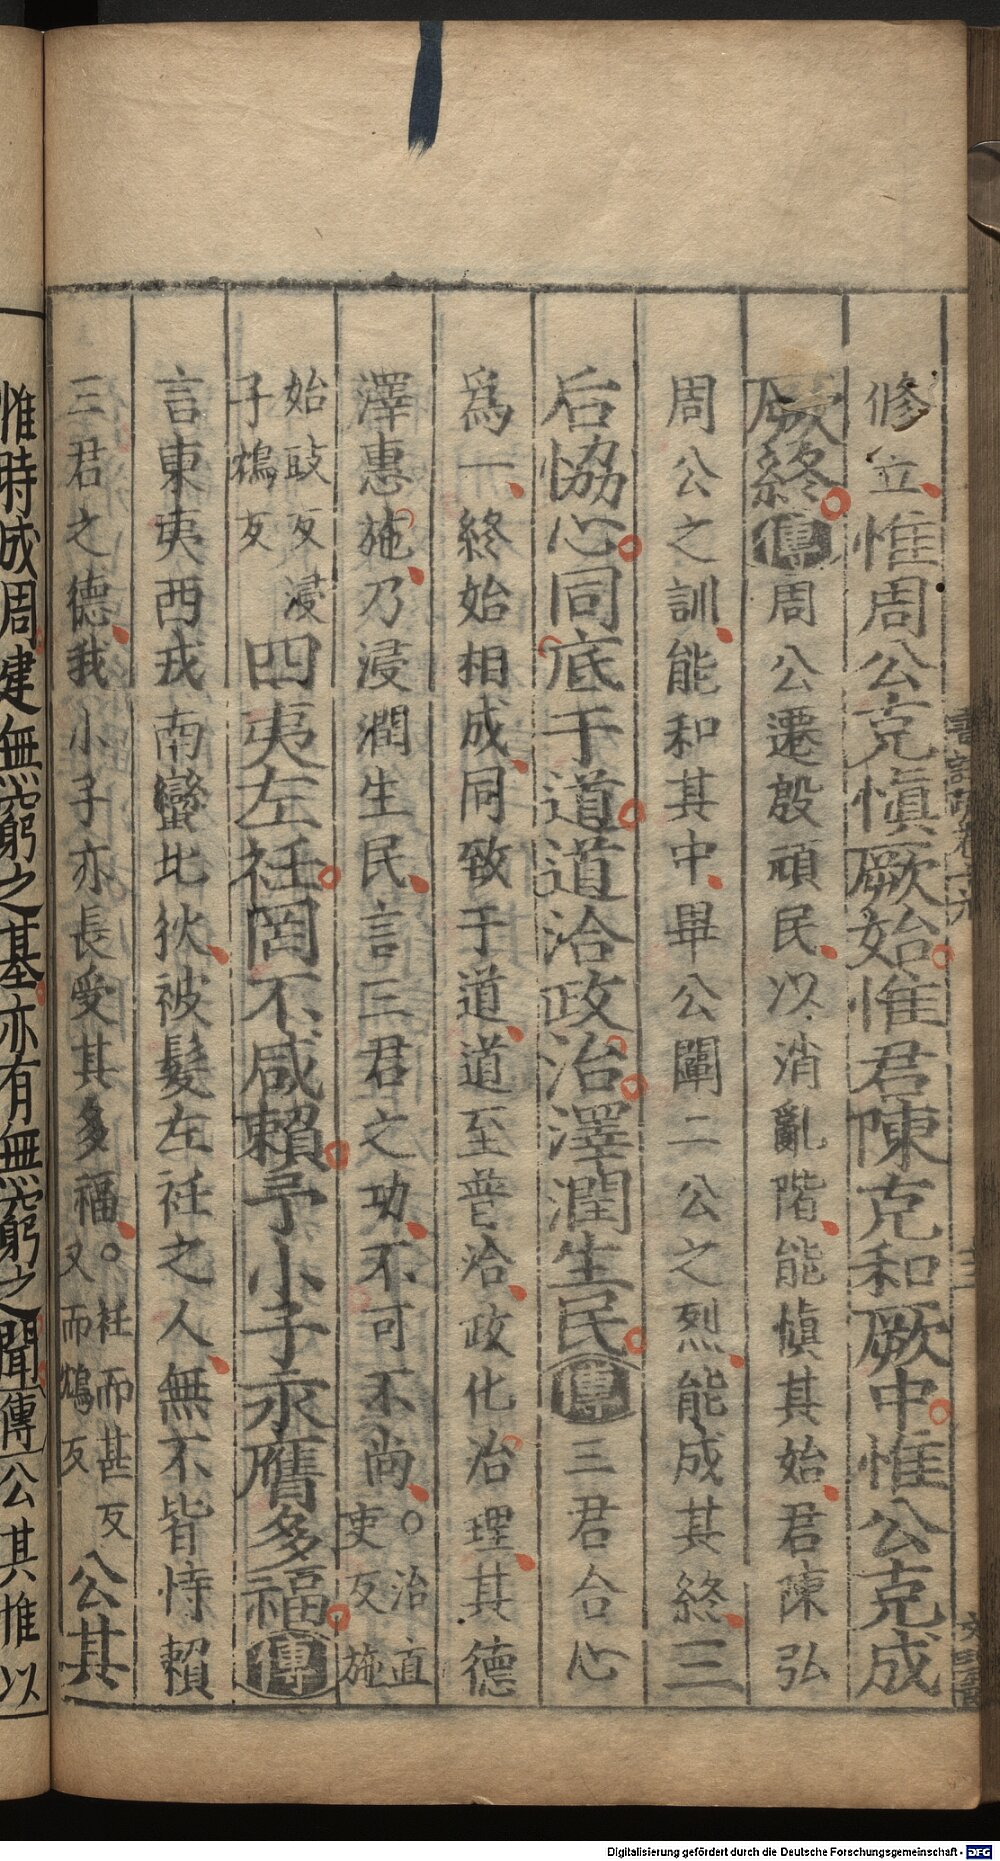 修立惟周公克愼厥始惟君陳克和厥中惟公克成
厥終傳周公遷殷頑民以消亂階能愼其始君陳弘
周公之訓能和其中畢公闡二公之烈能成其終三
后協心同底于道道洽政治澤潤生民傳三君合心
爲一終始相成同致于道道至普洽政化治理其德
澤惠施乃浸潤生民言三君之功不可不尚。治直
吏反施
始豉反浸
子鴆反四夷左衽罔不咸賴予小子永膺多福傳
言東夷西戎南蠻北狄被髮左衽之人無不皆恃賴
三君之德我小子亦長受其多福。衽而甚反
又而鴆反公其
惟時成周建無窮之基亦有無窮之聞傳公其惟以
Digitalisierung gefördert durch die Deutsche Forschungsgemeinschaft - DFG